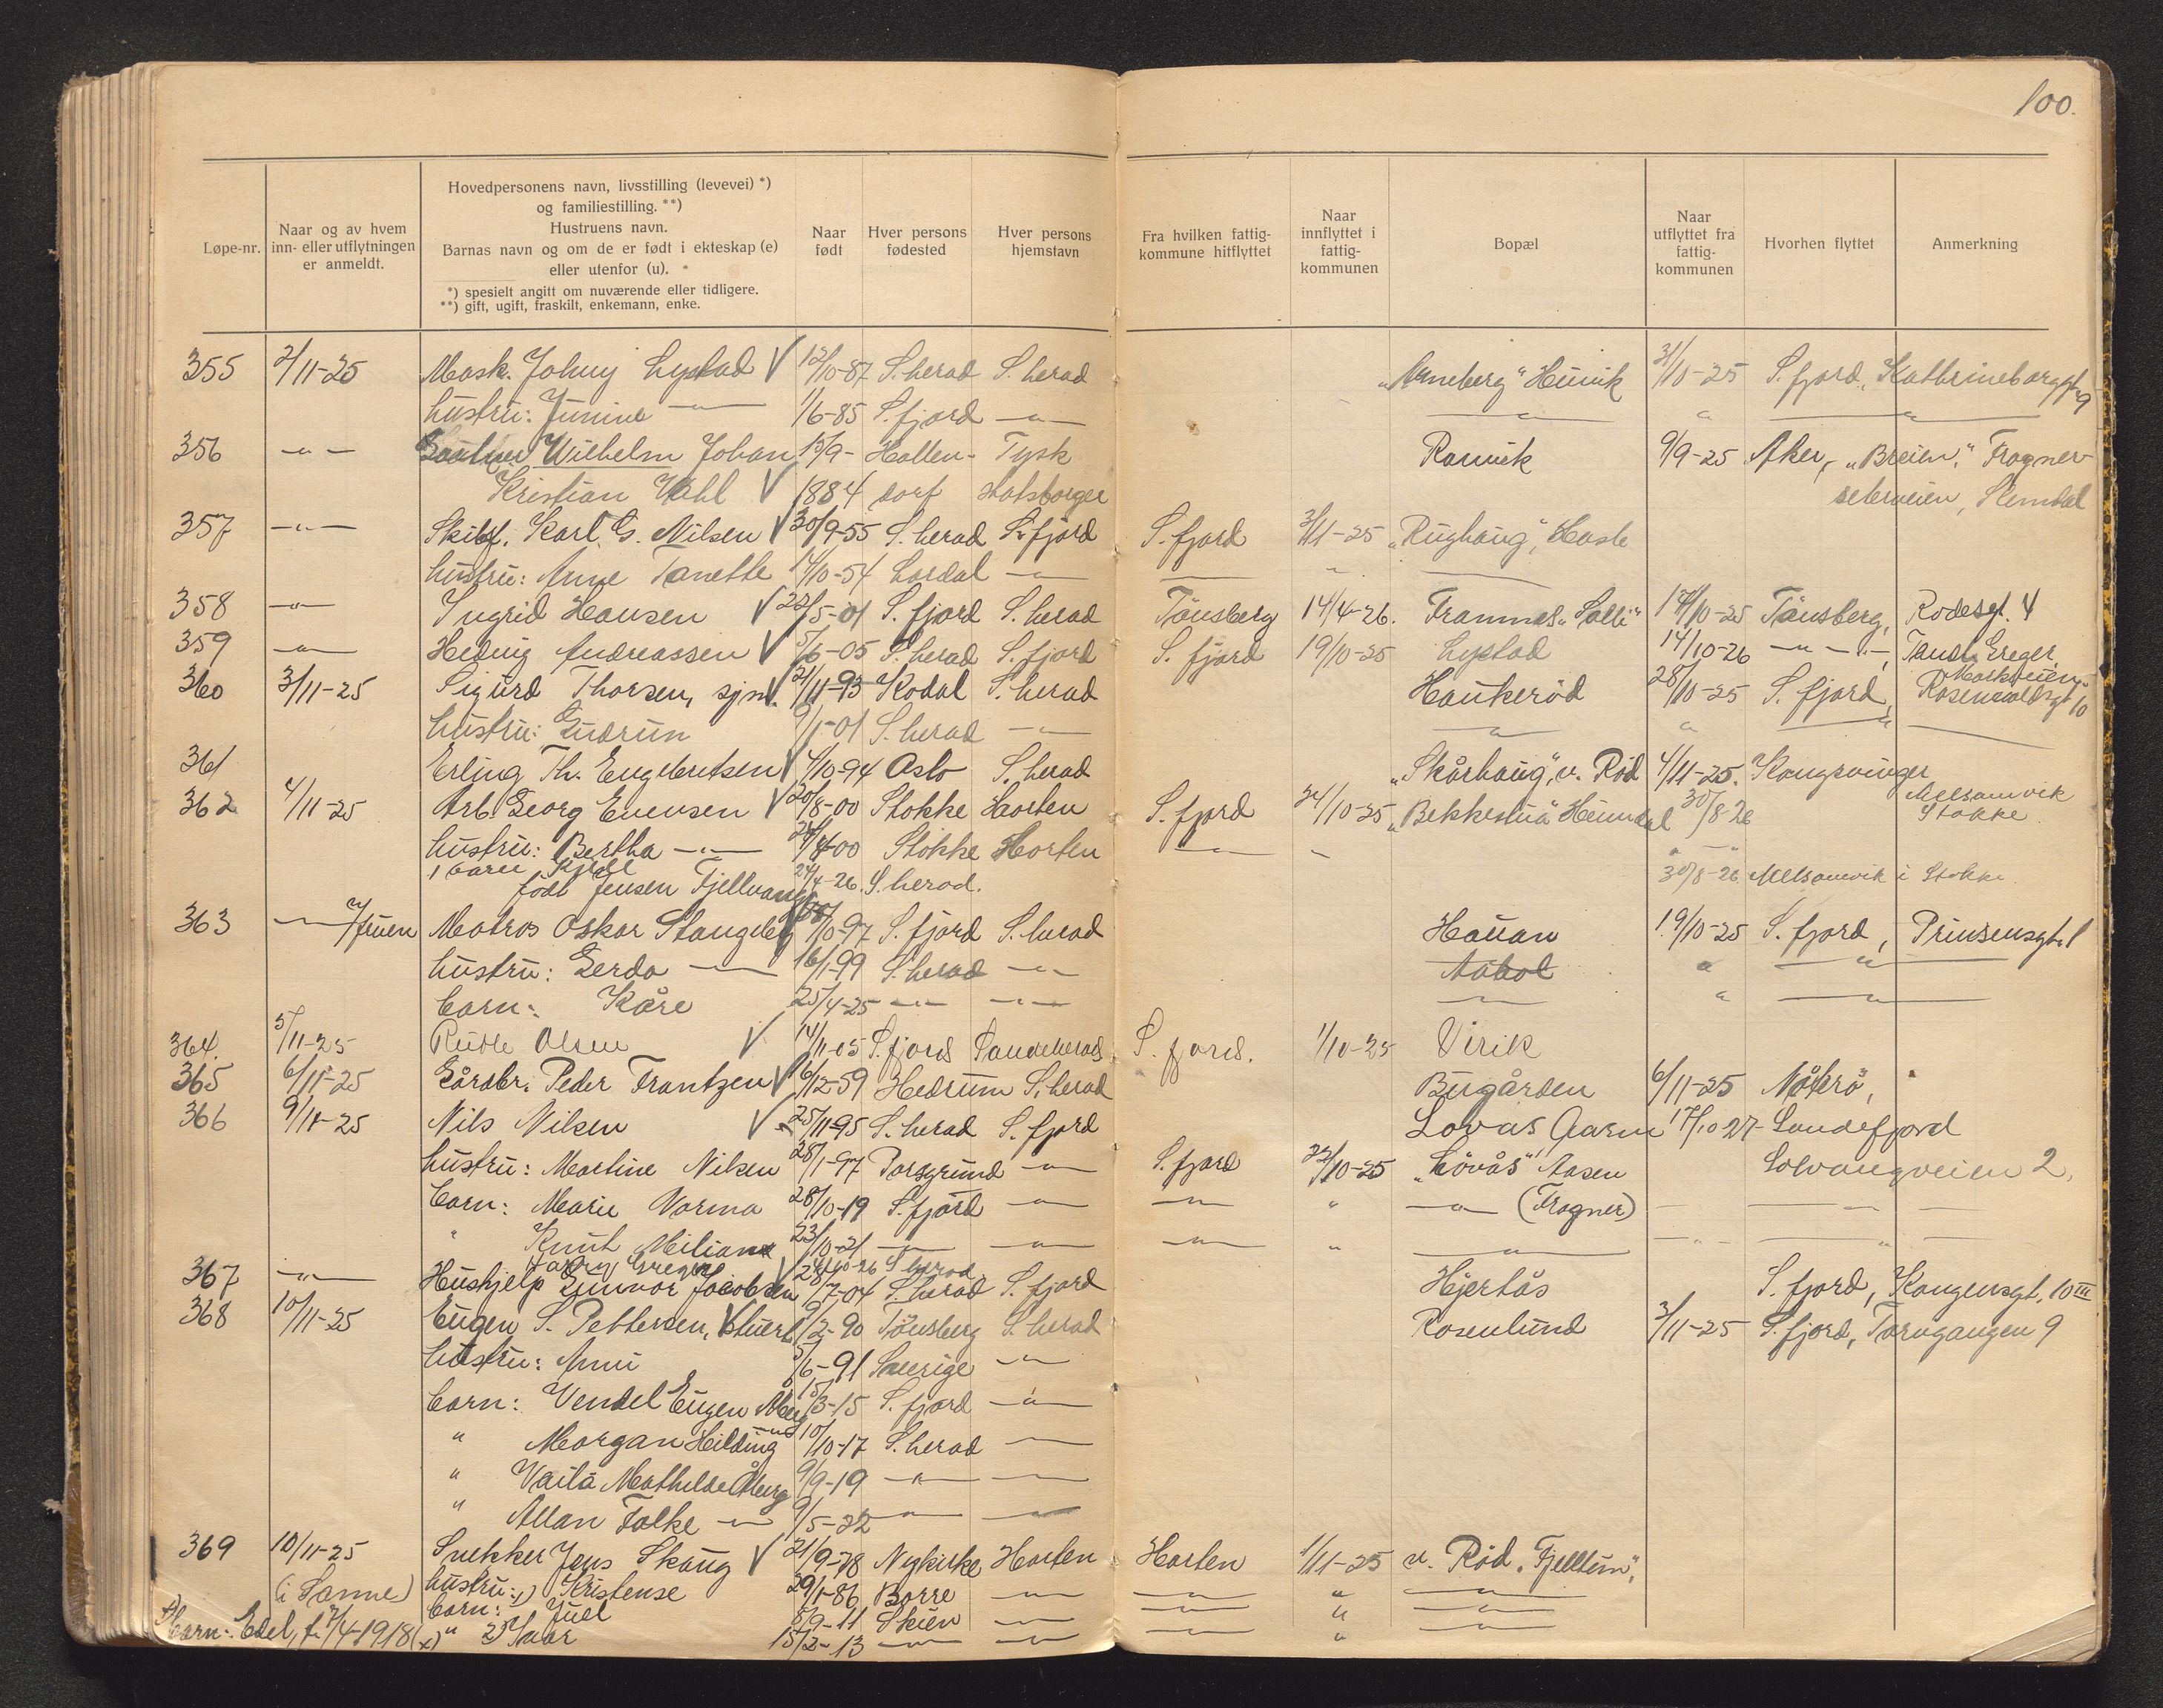 100.
Løpe-nr.
Naar og av hvem inn- eller utflytningen er anmeldt.
Hovedpersonens navn, livsstilling (levevei) *) og familiestilling. **) Hustruens navn. Barnas navn og om de er født i ekteskap (e) eller utenfor (u).
*) spesielt angitt om nuværende eller tidligere.
**) gift, ugift, fraskilt, enkemann, enke.
Naar født
Hver persons fødested
Hver persons hjemstavn
Fra hvilken fattigkommune hitflyttet
Naar innflyttet i fattigkommunen
Bopæl
Naar utflyttet fra fattigkommunen
Hvorhen flyttet
Anmerkning
355 2/11-25 Mask. Johny Lystad V 12/10-87 S. herad S. herad „Arneberg" Hunik 31/10-25 S. fjord, Kathrineborggt. 9
hustru: Junine —"— 1/6-85 S. fjord —"— —"— " —"—
356 —"— Wilhelm Johan 15/9- Hollen- Tysk Ranvik 9/9-25 Aker, „Breien", Frogner-
Kristian Wahl V 1884 dorf statsborger seterveien, Slemdal
357 —"— Skibsf. Karl G. Nilsen V 30/9-55 S. herad S. fjord S. fjord 3/11-25 „Rughaug", Hasle
hustru: Anne Tanette 14/10-54 Lardal —"— — " —
358 —"— Ingrid Hansen V 22/5-01 S. fjord S. herad Tönsberg 14/4-26. Framnes „Solli" 17/10-25 Tönsberg, Rodesgt. 4
359 —"— Hedvig Andreassen V 5/6-05 S. herad S. fjord S. fjord 19/10-25 Lystad 14/10-26 —"—"—,
360 3/11-25 Sigurd Thorsen, sjm. V 21/11-93 Kodal S. herad Haukeröd 28/10-25 S. fjord, Rosenvoldsgt 10
hustru: Gudrun 9/1-01 S. herad —"— —"— " —"—
361 Erling Th. Engebretsen V 4/10-94 Oslo S. herad „Skårhaug", v. Röd 4/11-25. Kongsvinger
362 4/11-25 Arb. Georg Evensen V 20/8-00 Stokke Horten S. fjord 24/10-25 „Bekkestua" Heimdal 30/8-26 Melsomvik Stokke
hustru: Bertha —"— 28/4-00 Stokke Horten —"— —
1 barn Kjell 24/4-26. S. herad. 30/8-26 Melsomvik i Stokke
født Jensen Fjellvang
363 —"— Matros Oskar Stangeby V /10-97 S. fjord S. herad Hauan 19/10-25 S. fjord, Prinsensgt. 1
hustru: Gerda —"— 16/1-99 S. herad —"— Aabol " —"—
barn: Kåre 25/4-25 —"— —"— —"— " —"—
364. 5/11-25 Ruth Olsen V 14/11-05 S. fjord Sandeherad S. fjord. 1/10-25 Virik
365 6/11-25 Gårdbr. Peder Frantzen V 16/12-59 Hedrum S. herad Bugården 6/11-25 Nøterö,
366 9/11-25 Nils Nilsen V 25/11-95 S. herad S. fjord Lövås Aasen 17/10 27- Sandefjord
hustru: Martine Nilsen 28/1-97 Porsgrund —"— S. fjord 22/10-25 „Lövås" Aasen Solvangveien 2.
barn: Marie Norma 28/10-19 S. fjord —"— —"— " —"— (Frogner)
" Knut Milian 23/10-21 —"— —"— —"— " —"—
Harry 26 S herad
367 —"— Hushjelp Gunvor Jacobsen V 28/7-04 S. herad S. fjord Hjertås S. fjord, Kongensgt. 10 III
368 10/11-25 Eugen S. Pettersen, V 9/2-90 Tönsberg S. herad Rosenlund 3/11-25 S. fjord, Torvgangen 9
hustru: Anni 5/6-91 Sverige —"—
barn: Vendel Eugen Åberg 15/3-15 S. fjord —"—
" Morgan Hilding —"— 10/10-17 S. herad —"—
" Vaila Mathilde Åberg 9/9-19 —"— —"—
" Allan Folke —"— 9/5-22 —"— —"—
369 10/11-25 Snekker Jens Skaug V 21/9-78 Nykirke Horten Horten 1/11-25 v. Röd „Fjelltun",
(i Sanne) hustru: Kristense 29/1-86 Borre —"— —"— " —"—
barn: 1) Juel 8/9-11 Skien —"— —"— " —"—
barn: Edel, f. 7/4-1918 (x) " 2) Ivar 15/2-13 —"— —"— —"— " —"—